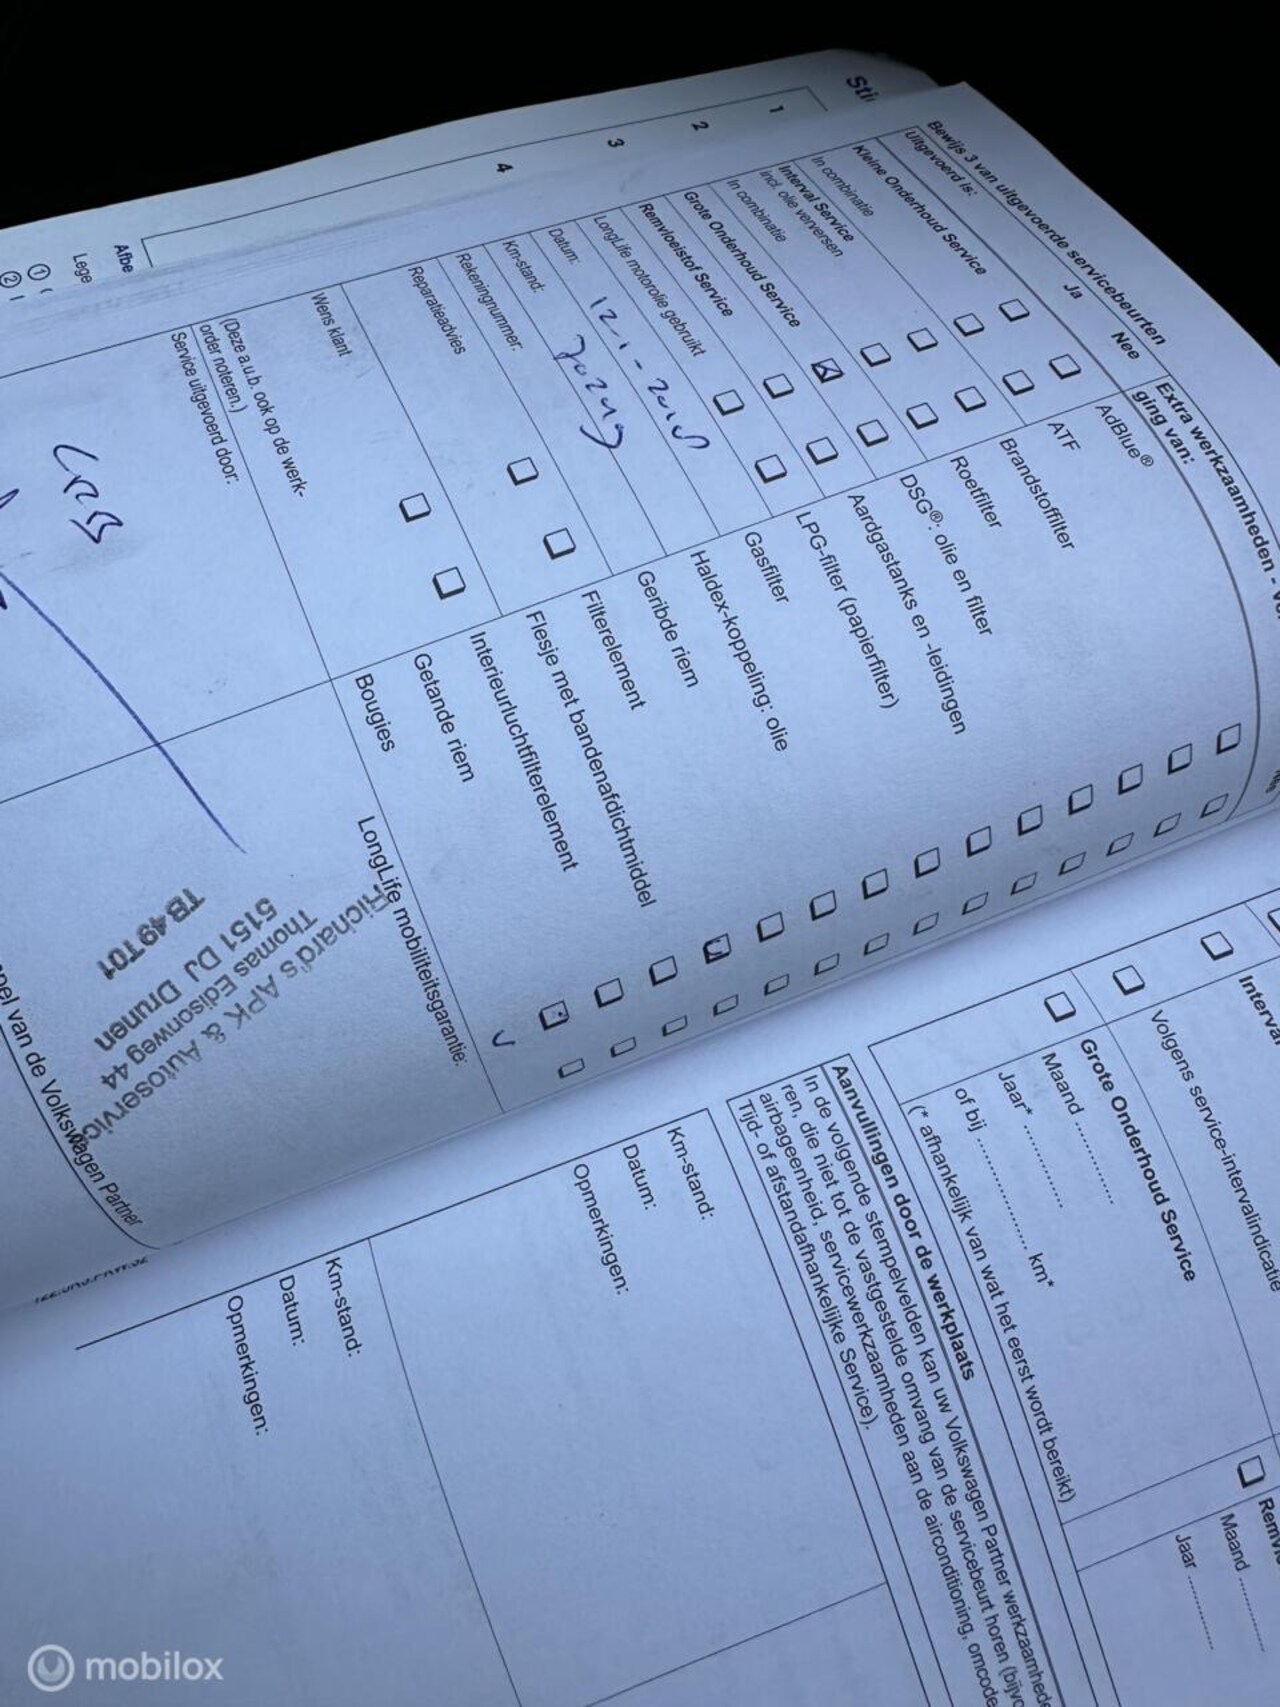 Bewijs 3 van uitgevoerde servicebeurten
Uitgevoerd is:
Ja
Nee
Kleine Onderhoud Service
In combinatie
Interval Service
incl. olie verversen
In combinatie
Grote Onderhoud Service
Remvloeistof Service
LongLife motorolie gebruikt
Datum:
Km-stand:
Rekeningnummer:
Reparatieadvies
Wens klant
(Deze a.u.b. ook op de werk-
order noteren.)
Service uitgevoerd door:
Extra werkzaamheden -
ging van:
AdBlue®
ATF
Brandstoffilter
Roetfilter
DSG®: olie en filter
Aardgastanks en -leidingen
LPG-filter (papierfilter)
Gasfilter
Haldex-koppeling: olie
Geribde riem
Filterelement
Flesje met bandenafdichtmiddel
Interieurluchtfilterelement
Getande riem
Bougies
LongLife mobiliteitsgarantie:
Richard's APK & Autoservice
Thomas Edisonweg 44
5151 DJ Drunen
TB49T01
van de Volkswagen Partner
1
2
3
4
Afbe
Lege
①
②
Volgens service-intervalindicatie
Grote Onderhoud Service
Maand
Jaar*
of bij km*
(* afhankelijk van wat het eerst wordt bereikt)
Maand
Jaar
Aanvullingen door de werkplaats
In de volgende stempelvelden kan uw Volkswagen Partner werkzaamhede
ren, die niet tot de vastgestelde omvang van de servicebeurt horen (bijvo
airbageenheid, servicewerkzaamheden aan de airconditioning, omcode
Tijd- of afstandafhankelijke Service).
Km-stand:
Datum:
Opmerkingen:
Km-stand:
Datum:
Opmerkingen:
mobilox